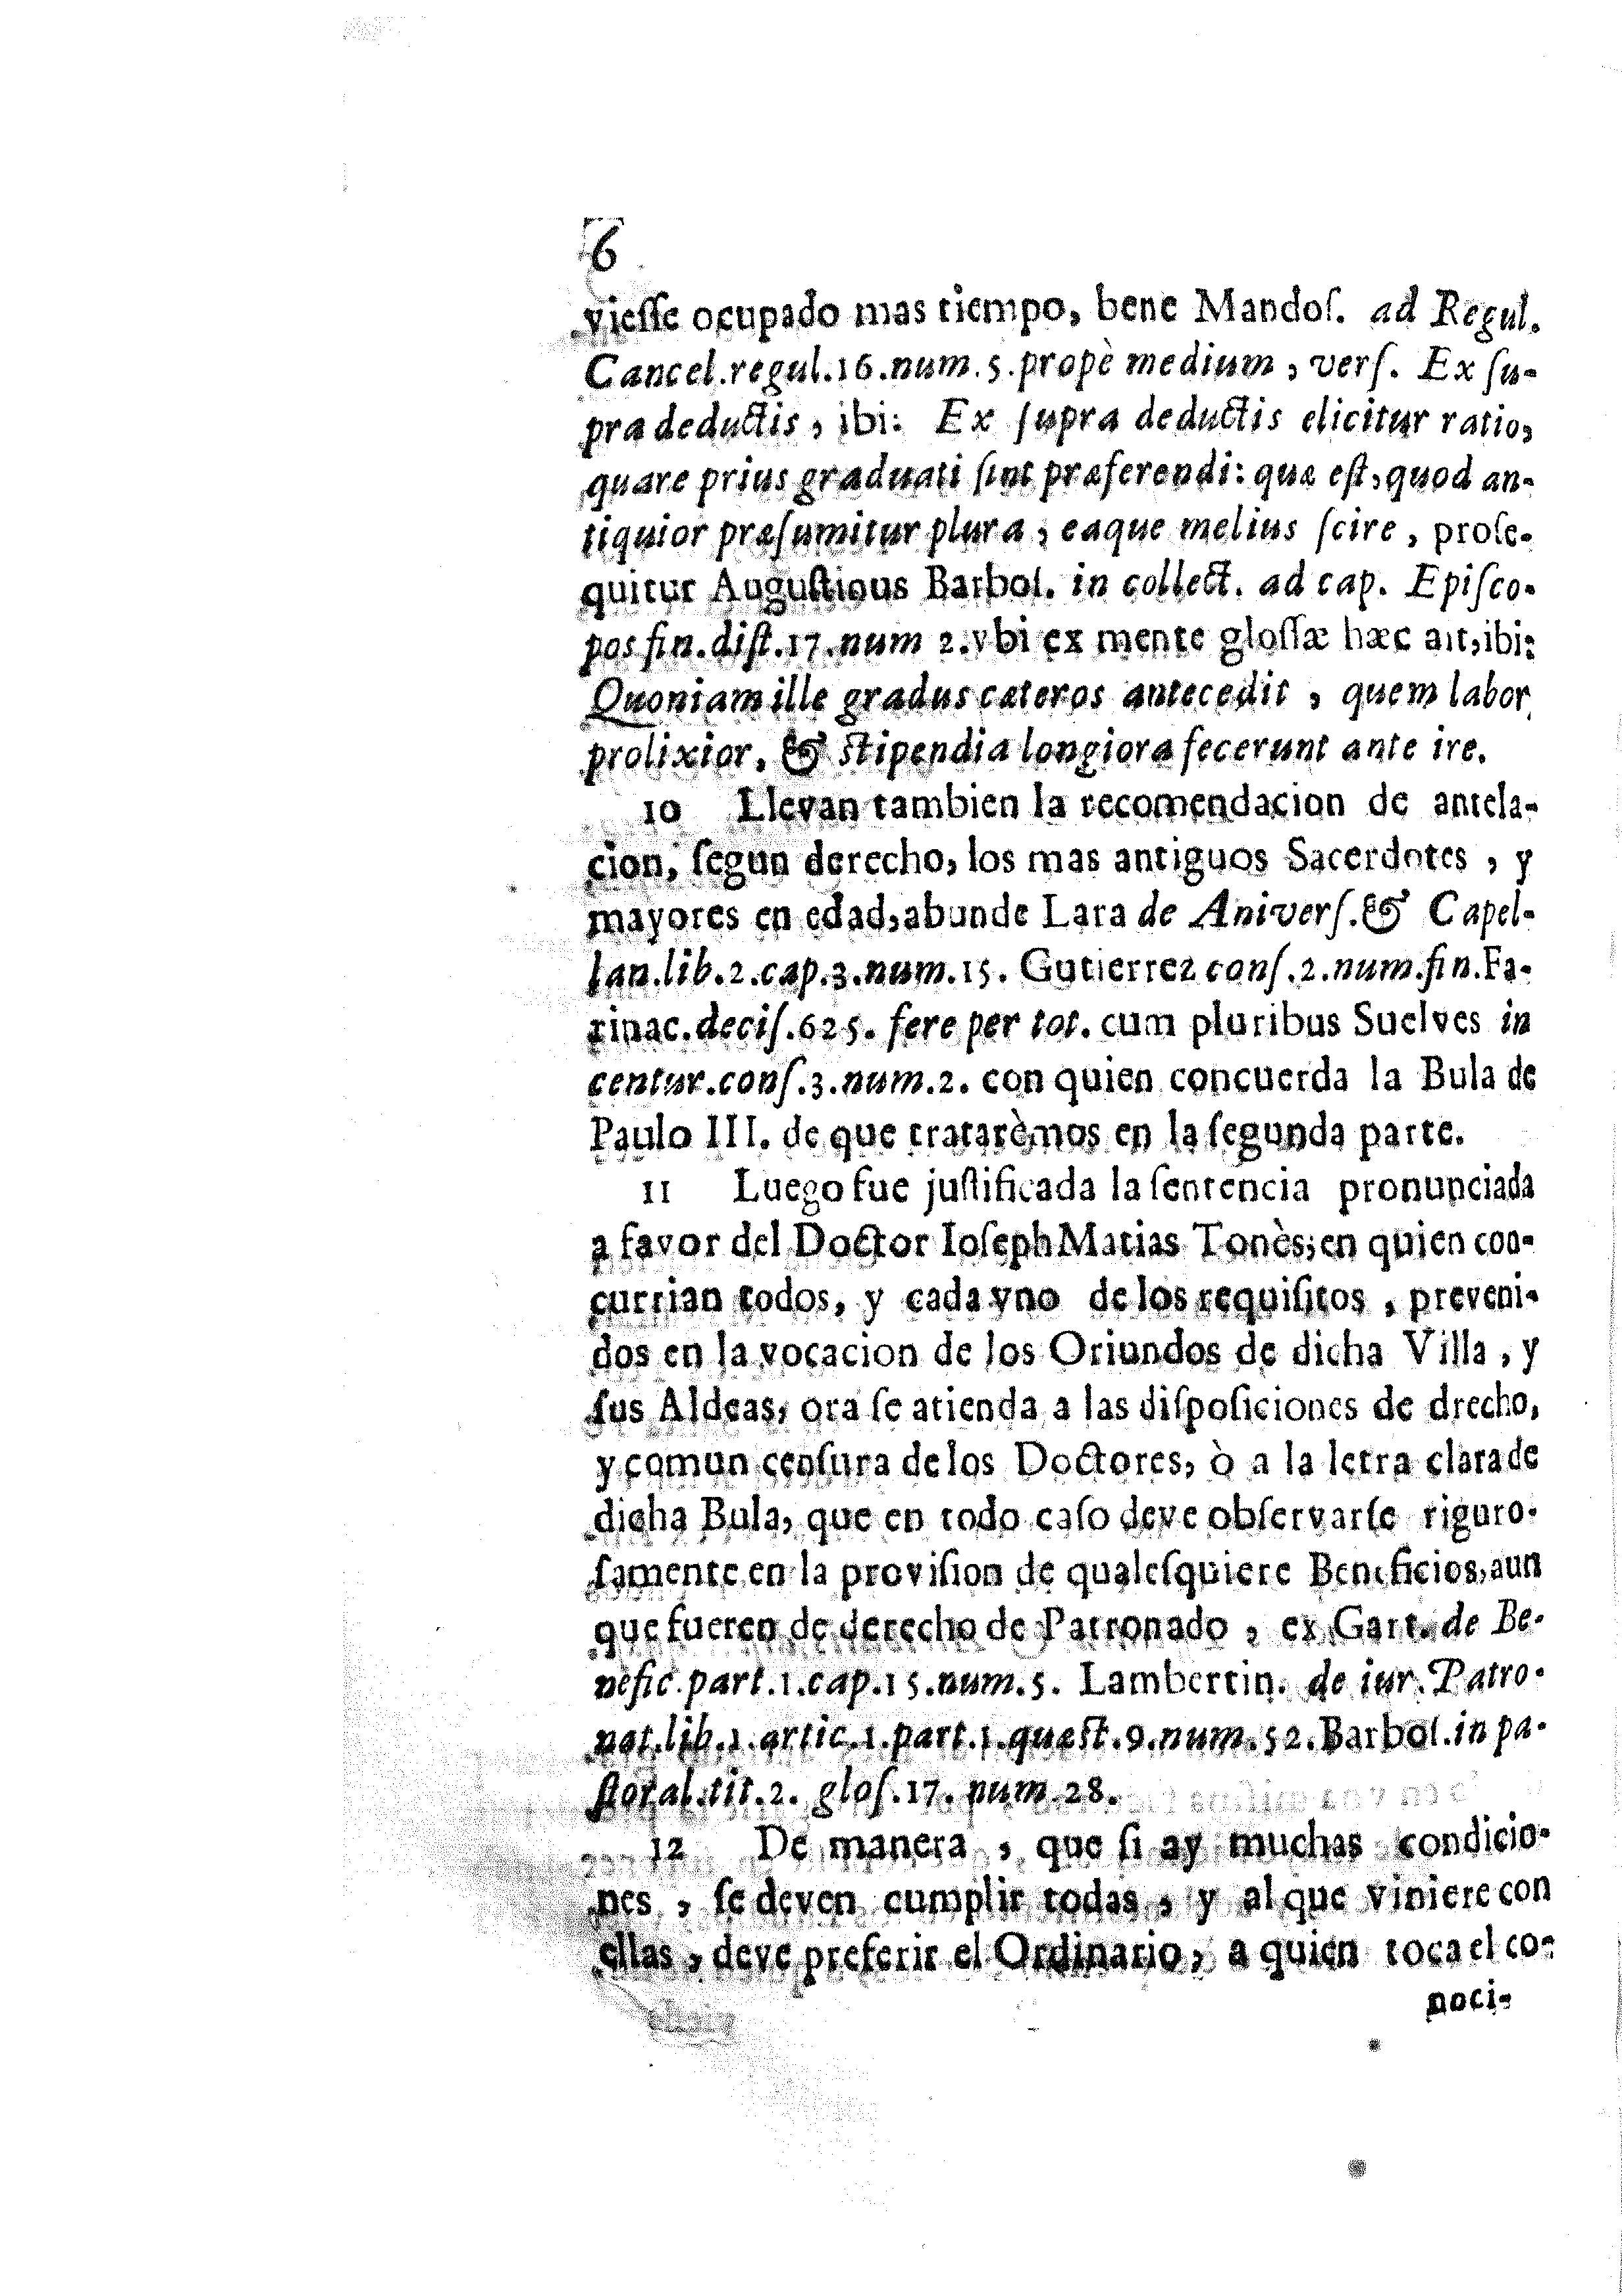 6
viesse ocupado mas tiempo, bene Mandoſ. ad Regul.
Cancel.regul.16.num.5.propè medium, verſ. Ex ſu-
pra deductis, ibi: Ex ſupra deductis elicitur ratio,
quare prius graduati ſint præferendi: quæ eſt, quod an-
tiquior præſumitur plura, eaque melius ſcire, proſe-
quitur Auguſtinus Barboſ. in collect. ad cap. Epiſco-
pos fin.diſt.17.num 2.vbi ex mente gloſſæ hæc ait, ibi:
Quoniam ille gradus cæteros antecedit, quem labor
prolixior, & ſtipendia longiora fecerunt ante ire.
10 Llevan tambien la recomendacion de antela-
cion, ſegun derecho, los mas antiguos Sacerdotes, y
mayores en edad, abunde Lara de Aniverſ. & Capel-
lan.lib.2.cap.3.num.15. Gutierrez conſ.2.num.fin.Fa-
rinac.deciſ.625. fere per tot. cum pluribus Suelves in
centur.conſ.3.num.2. con quien concuerda la Bula de
Paulo III. de que tratarèmos en la ſegunda parte.
11 Luego fue juſtificada la ſentencia pronunciada
a favor del Doctor Ioſeph Matias Tonès, en quien con-
currian todos, y cada vno de los requiſitos, preveni-
dos en la vocacion de los Oriundos de dicha Villa, y
ſus Aldeas, ora ſe atienda a las diſpoſiciones de drecho,
y comun cenſura de los Doctores, ò a la letra clara de
dicha Bula, que en todo caſo deve obſervarſe riguro-
ſamente en la proviſion de qualeſquiere Beneficios, aun
que fueren de derecho de Patronado, ex Gart. de Be-
nefic.part.1.cap.15.num.5. Lambertin. de iur.Patro-
nat.lib.1.artic.1.part.1.quæſt.9.num.52.Barboſ.in pa-
ſtoral.tit.2. gloſ.17. num.28.
12 De manera, que ſi ay muchas condicio-
nes, ſe deven cumplir todas, y al que viniere con
ellas, deve preferir el Ordinario, a quien toca el co-
noci-